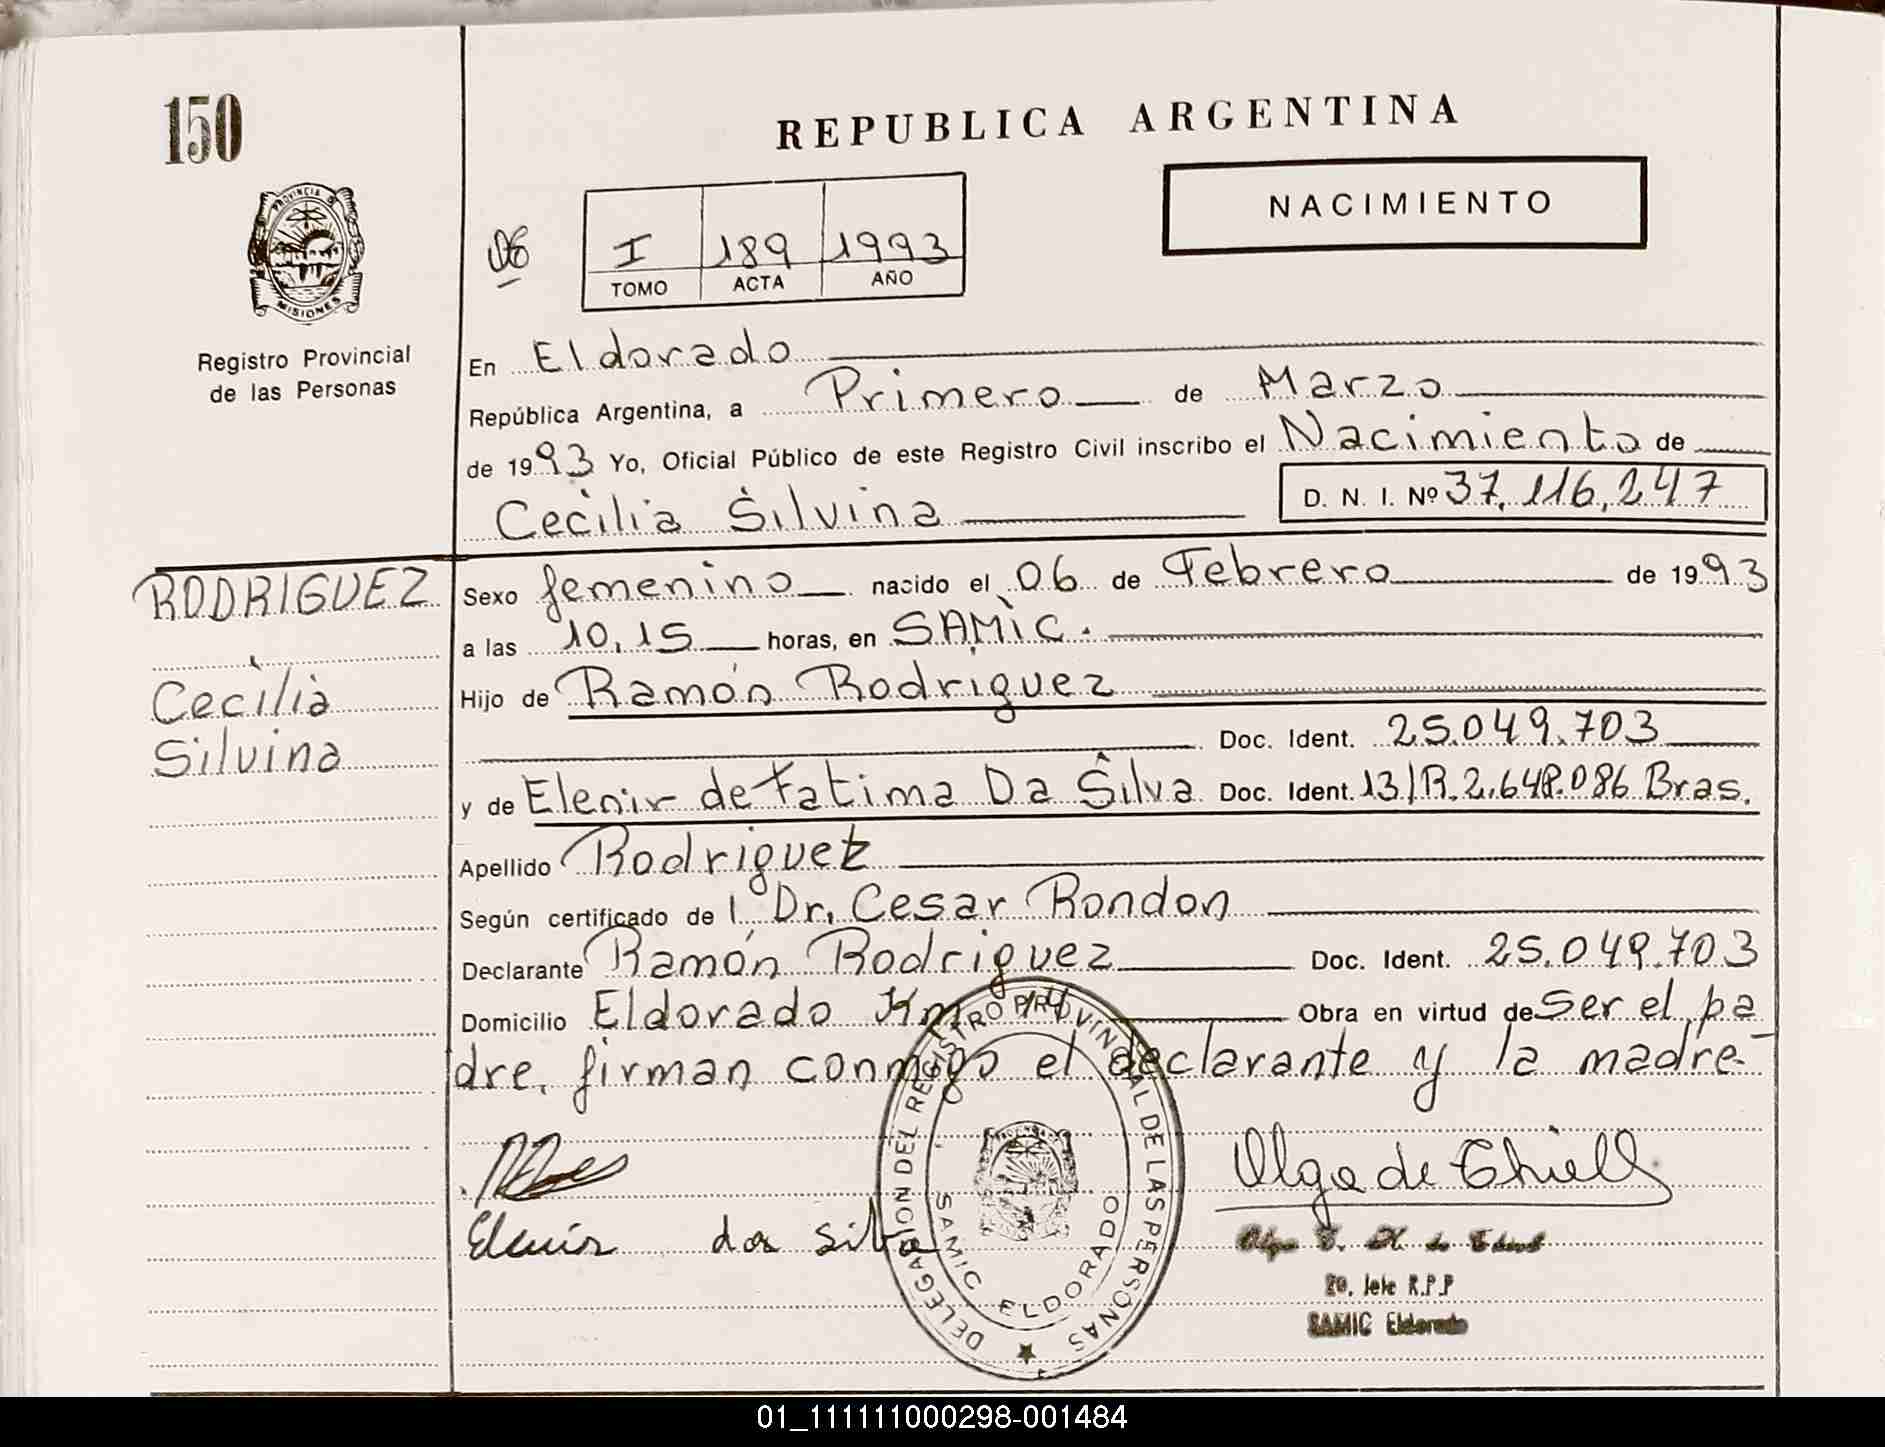 150
REPUBLICA ARGENTINA
NACIMIENTO
06
I 189 1993
TOMO ACTA AÑO
PROVINCIA D
MISIONES
Registro Provincial
de las Personas
En Eldorado
República Argentina, a Primero de Marzo
de 1993 Yo, Oficial Público de este Registro Civil inscribo el Nacimiento de
Cecilia Silvina D. N. I. Nº 37.116.247
RODRIGUEZ
Cecilia
Silvina
Sexo femenino nacido el 06 de Febrero de 1993
a las 10,15 horas, en SAMIC.
Hijo de Ramón Rodriguez
Doc. Ident. 25.049.703
y de Elenir de Fatima Da Silva Doc. Ident. 13/R.2.648.086 Bras.
Apellido Rodriguez
Según certificado de l Dr. Cesar Rondon
Declarante Ramón Rodriguez Doc. Ident. 25.049.703
Domicilio Eldorado Km 14 Obra en virtud de ser el pa
dre, firman conmigo el declarante y la madre-
Elenir da silva
Olga de Thiell
DELEGACION DEL REGISTRO PROVINCIAL DE LAS PERSONAS
SAMIC ELDORADO
Jefe R.P.P
SAMIC Eldorado
01_111111000298-001484